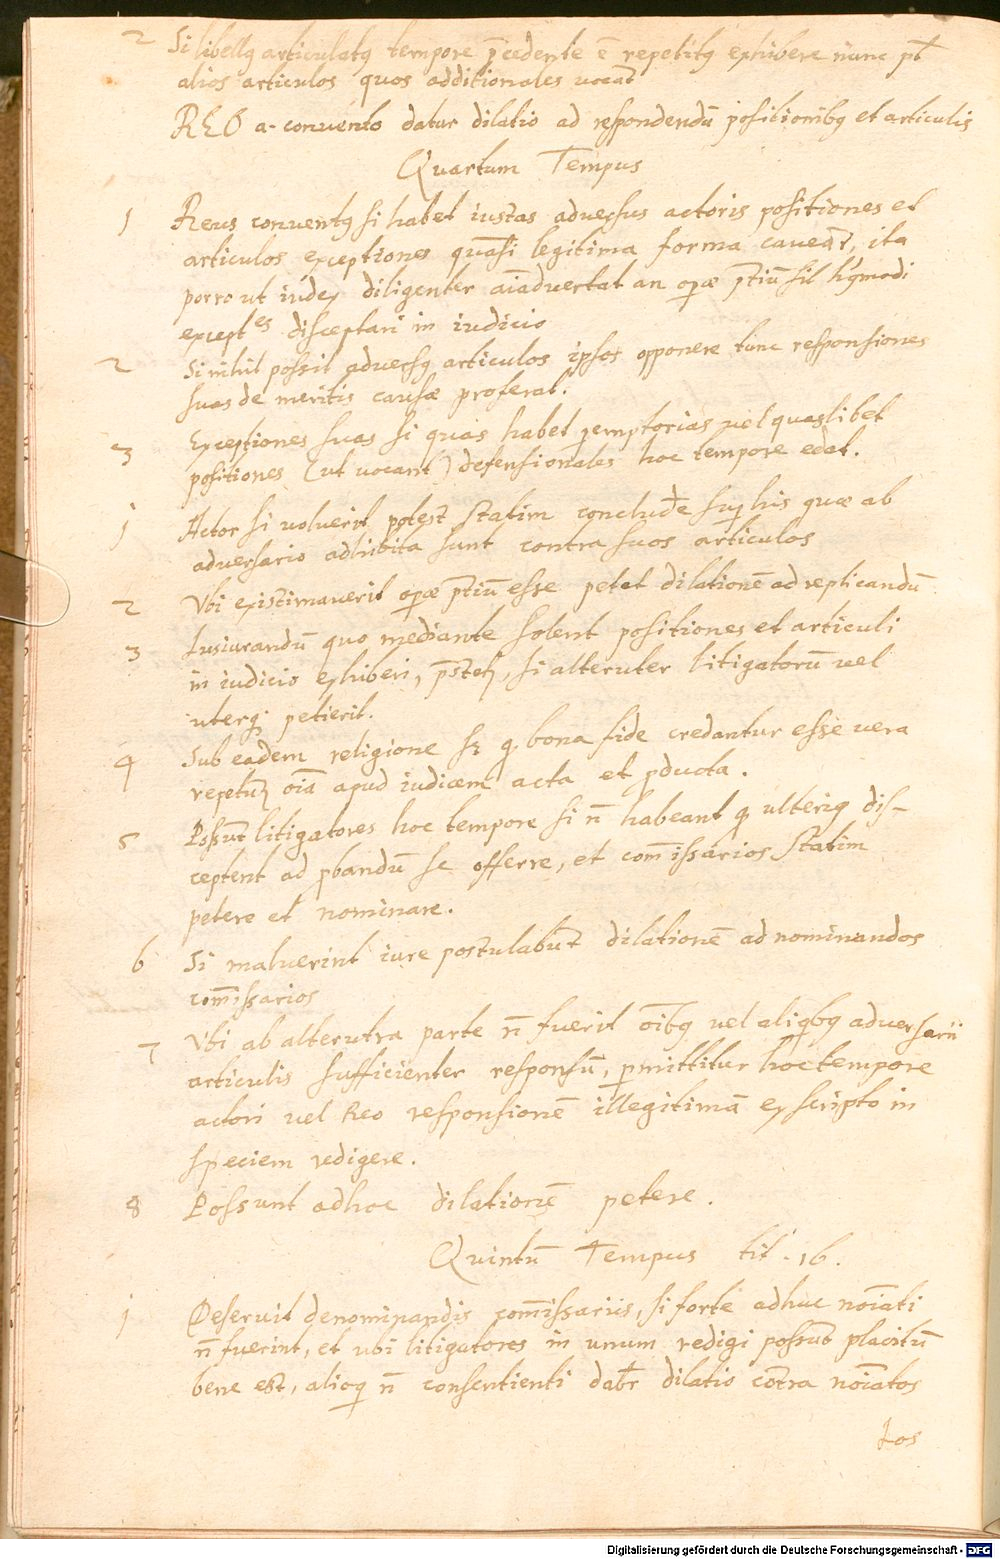 2 Si libellꝫ articulatꝫ tempore p̄cedente ē repetitꝫ exhibere nunc pt̄
alios articulos quos additionales vocāt
REO a. convento datur dilatio ad respondendū positionibꝫ et articulis
Quartum Tempus
1 Reus conventꝫ si habet iustas adversus actoris positiones et
articulos exceptiones quasi legitima forma caveāt, ita
porro ut iudex diligenter aīadvertat an operæ p̄tiū sit hꝫmodi
exceptes disceptari in iudicio
2 Si nihil possit adversꝫ articulos ipsos opponere tunc responsiones
suas de meritis causæ proferat.
3 Exceptiones suas si quas habet ꝑemptorias vel quaslibet
positiones (ut vocant) defensionales hoc tempore edat.
1 Actor si voluerit potest statim concludere suꝑ his quæ ab
adversario adhibita sunt contra suos articulos
2 Vbi existimaverit operæ p̄tiū esse petet dilationē ad replicandū
3 Iusiurandū quo mediante solent positiones et articuli
in iudicio exhiberi, p̄stetꝫ, si alteruter litigatorū vel
uterqꝫ petierit.
4 Sub eadem religione sꝫ ꝙ bona fide credantur esse vera
repetunt oīa apud iudicem acta et ꝓducta.
5 Possūt litigatores hoc tempore si n̄ habeant ꝙ ulteriꝫ dis-
ceptent ad ꝓbandū se offerre, et com̄issarios statim
petere et nominare.
6 Si maluerint iure postulabūt dilationē ad nominandos
com̄issarios
7 Vbi ab alterutra parte n̄ fuerit oībꝫ vel aliqbꝫ adversarii
articulis sufficienter responsū, ꝑmittitur hoc tempore
actori vel Reo responsionē illegitimā ex scripto in
speciem redigere.
8 Possunt adhoc dilationē petere.
Quintū Tempus tit. 16.
1 Deservit denominandis com̄issariis, si forte adhuc noīati
n̄ fuerint, et ubi litigatores in unum redigi possūt placitū
bene est, alioqꝫ n̄ consentienti dabr̄ dilatio cōtra noīatos
Los
Digitalisierung gefördert durch die Deutsche Forschungsgemeinschaft - DFG